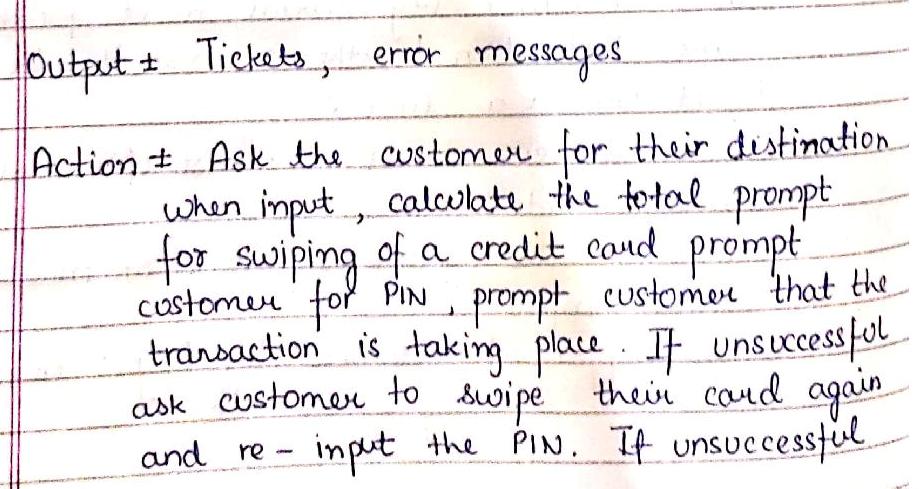 Output :- Tickets, error messages
Action :- Ask the customer for their distination
when input, calculate the total prompt
for swiping of a credit card prompt
customer for PIN, prompt customer that the
transaction is taking place. If unsuccessful
ask customer to swipe their card again
and re-input the PIN. If unsuccessful